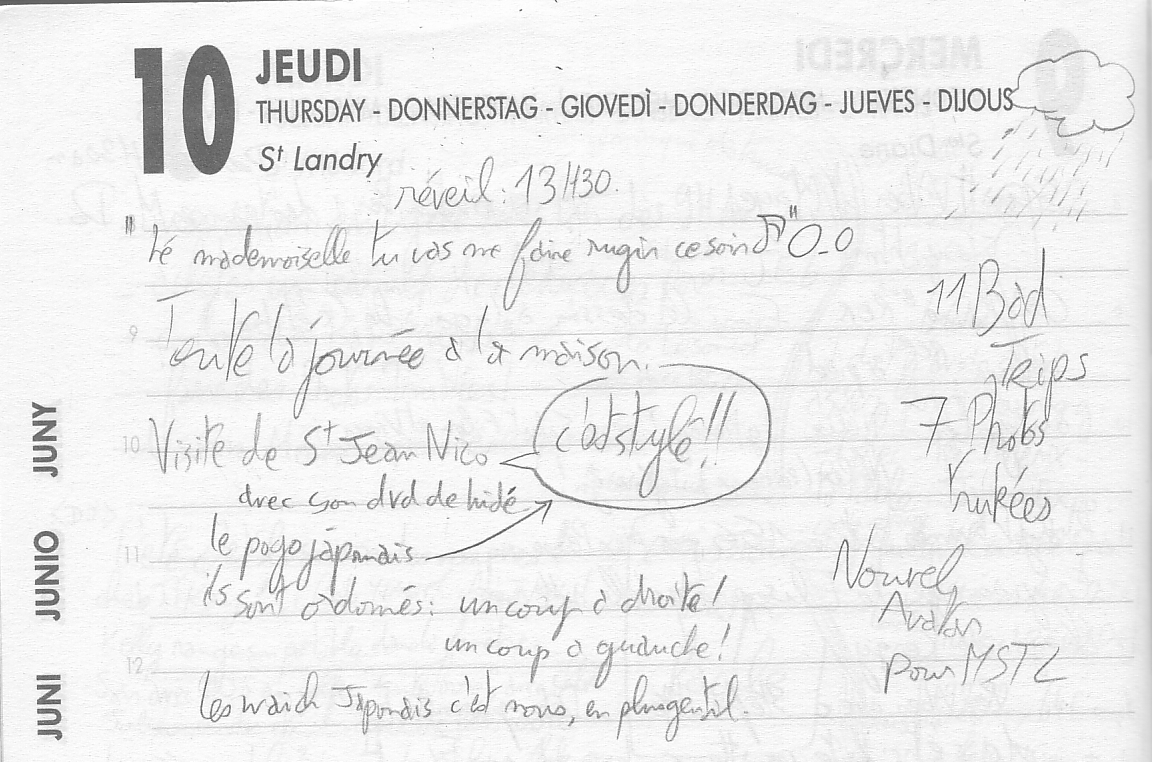 10 JEUDI
THURSDAY - DONNERSTAG - GIOVEDÌ - DONDERDAG - JUEVES - DIJOUS
St Landry
réveil : 13H30.
"hé mademoiselle tu vas me faire rugir ce soir ♫" O_O
Toute la journée à la maison.
Visite de St Jean Nico
c'est stylé !!
avec son dvd de hidé
le pogo japonais
ils sont ordonnés : un coup à droite !
un coup à guauche !
Les Japonais c'est nous, en plus gentil.
11 Bad
Trips
7 Photos
trukées
Nouvel
Avatar
pour MSTL
9
10
11
12
JUNI JUNIO JUNY